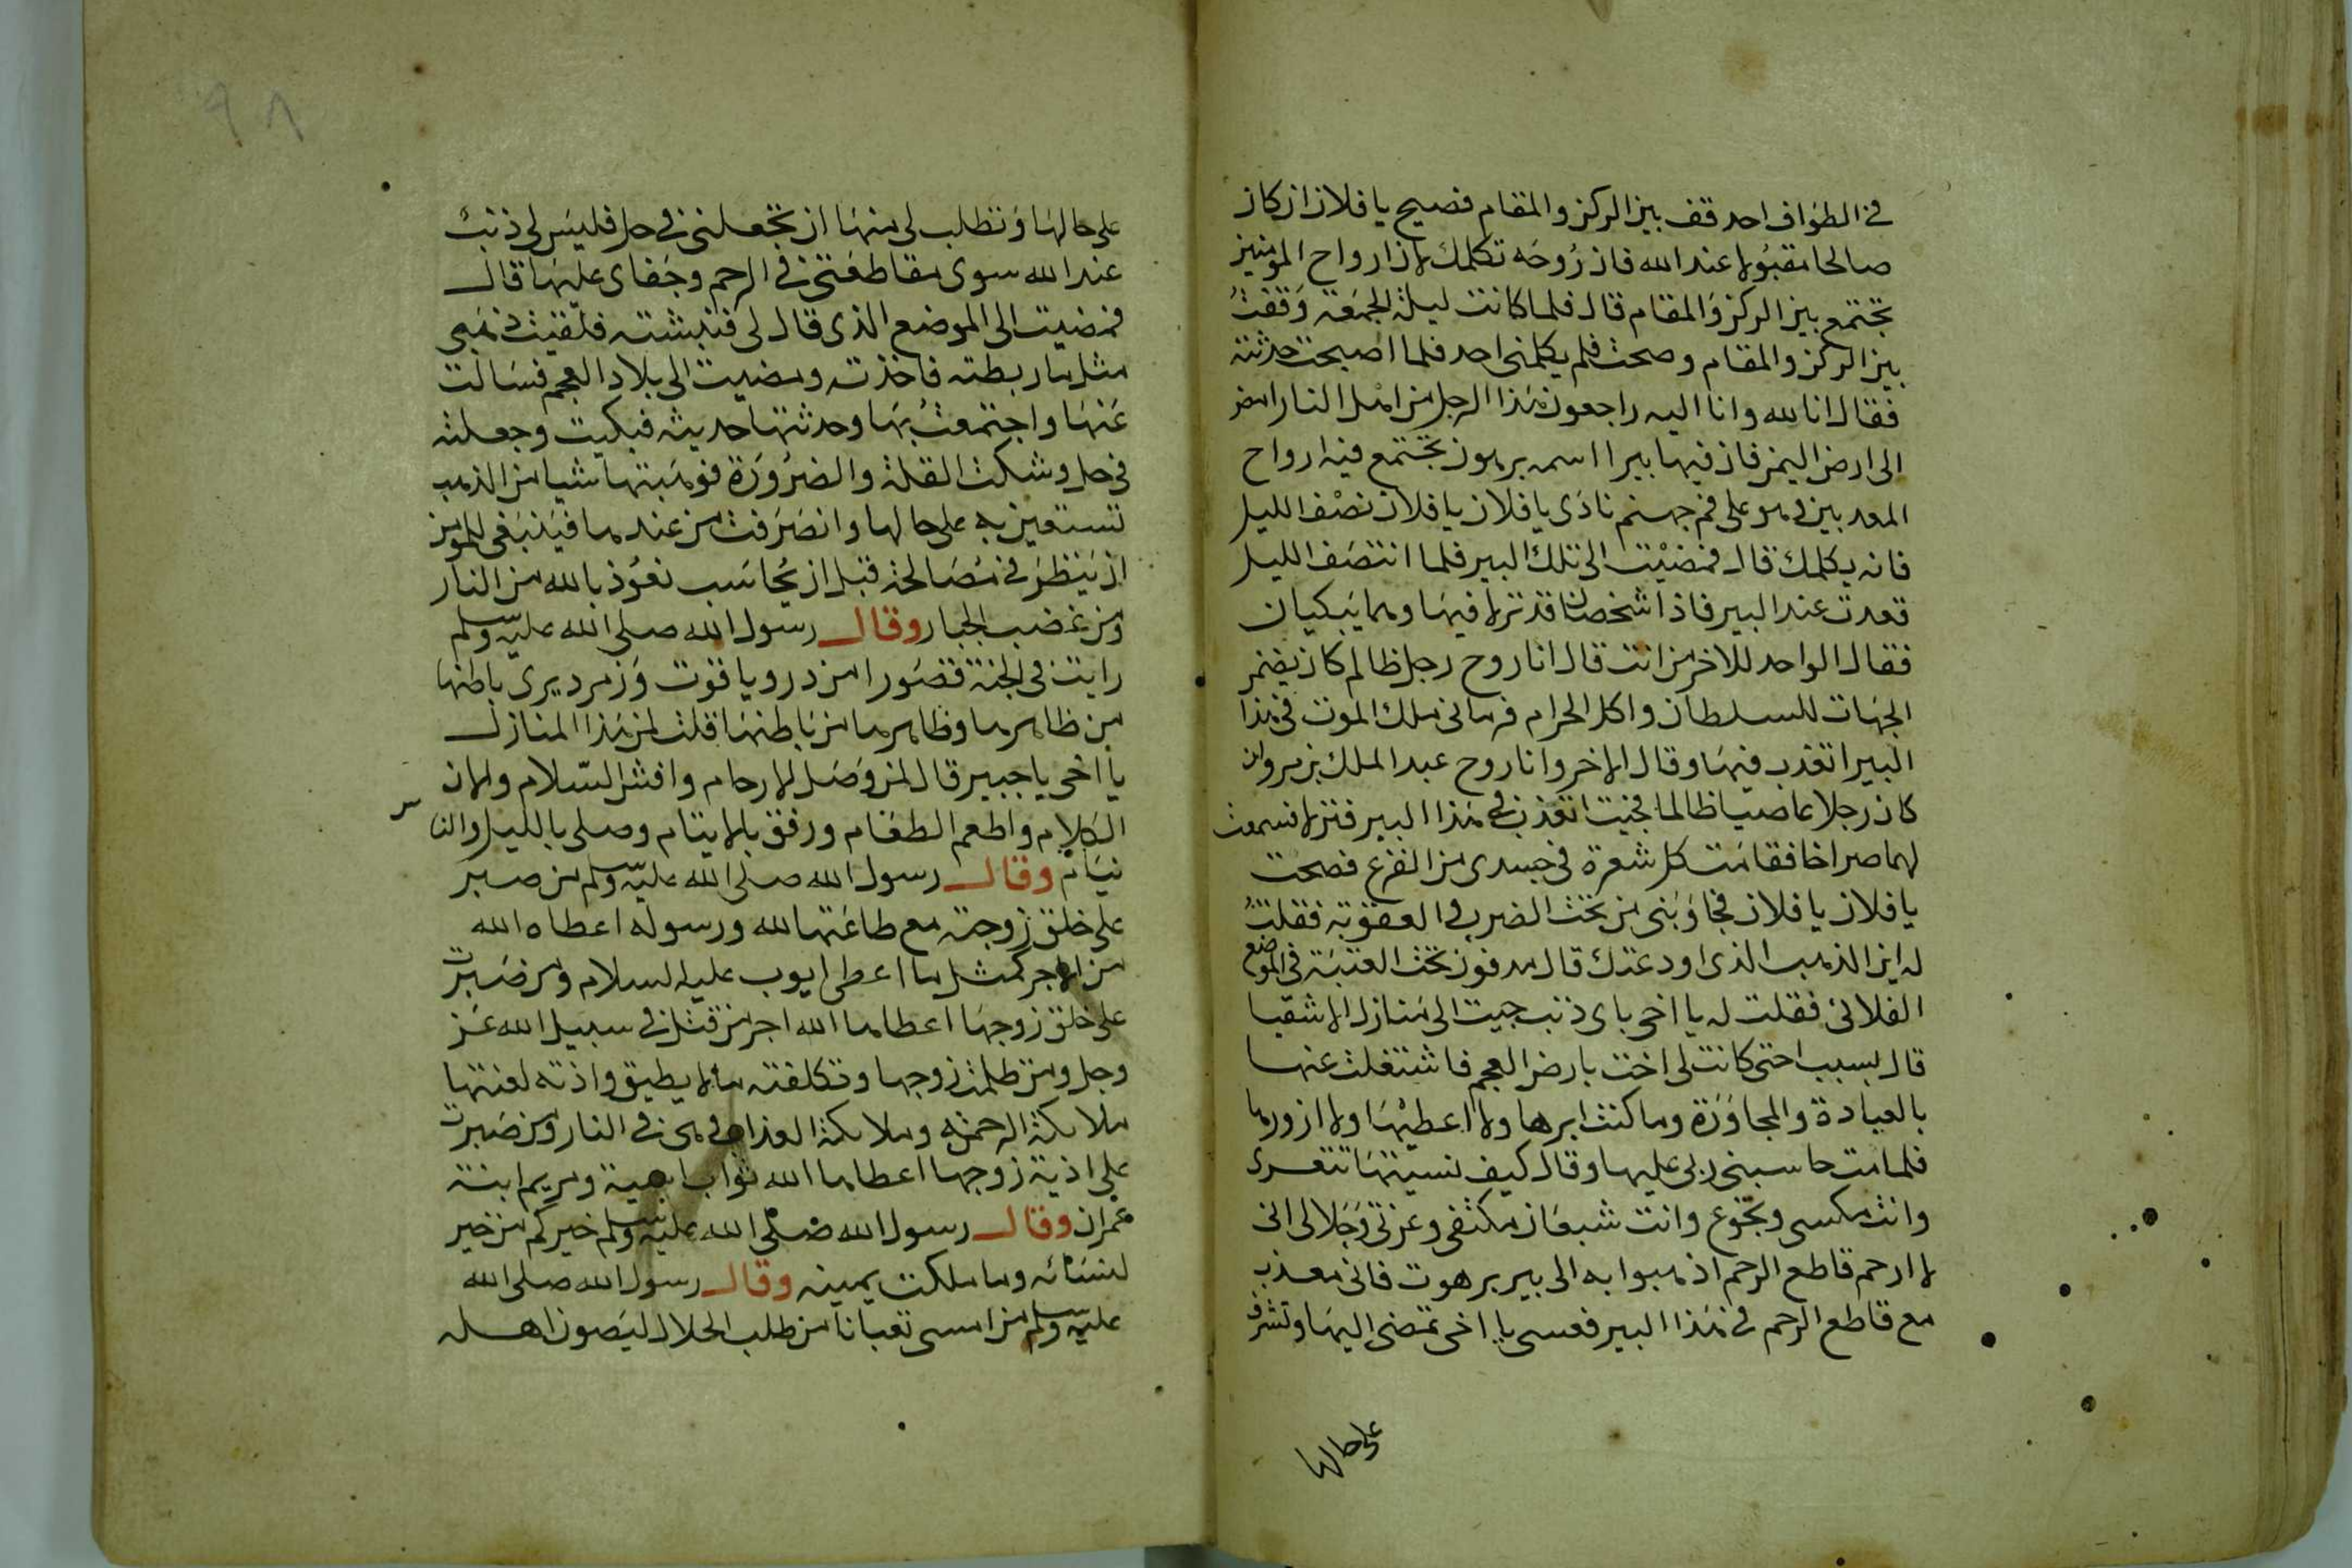 في الطواف احد قف بين الركن والمقام فصيح يا فلان ان كان
صالحا مقبولا عند الله فان روحه تكلمك لان ارواح المومنين
تجتمع بين الركن والمقام قال فلما كانت ليلة الجمعة وقفت
بين الركن والمقام وصحت فلم يكلمنى احد فلما اصبحت حدثته
فقال انا لله وانا اليه راجعون هذا الرجل من اهل النار امض
الى ارض اليمن فان فيها بيرا اسمه برهوت تجتمع فيه ارواح
المعذبين وهو على فم جهنم نادى يا فلان يا فلان نصف الليل
فانه يكلمك قال فمضيت الى تلك البير فلما انتصف الليل
قعدت عند البير فاذا شخصان قد نزلا فيها وهما يبكيان
فقال الواحد للاخر من انت قال انا روح رجل ظالم كان يضمن
الجهات للسلطان واكل الحرام فرمانى ملك الموت في هذا
البير اتعذب فيها وقال الاخر وانا روح عبد الملك بن مروان
كان رجلا عاصيا ظالما فجيت اتعذب في هذا البير فنزلا فسمعت
لهما صراخا فقامت كل شعرة في جسدى من الفزع فصحت
يا فلان يا فلان فجاوبنى من تحت الضرب والعقوبة فقلت
له اين الذهب الذى اودعتك قال مدفون تحت العتبة في الموضع
الفلانى فقلت له يا اخى باى ذنب جيت الى منازل الاشقيا
قال بسبب اختى كانت لى اخت بارض العجم فاشتغلت عنها
بالعبادة والمجاورة وما كنت ابرها ولا اعطيها ولا ازورها
فلما مت حاسبنى ربى عليها وقال كيف نسيتها تتعرى
وانت مكسى وتجوع وانت شبعان مكتفى وعزتى وجلالى انى
لا ارحم قاطع الرحم اذهبوا به الى بير برهوت فانى معذب
مع قاطع الرحم في هذا البير فعسى يا اخى تمضى اليها وتشرف
على حالها
٩٨
على حالها وتطلب لى منها ان تجعلنى في حل فليس لى ذنب
عند الله سوى مقاطعتى في الرحم وجفاى عليها قال
فمضيت الى الموضع الذى قال لى فنبشته فلقيت ذهبى
مثل ما ربطته فاخذته ومضيت الى بلاد العجم فسالت
عنها واجتمعت بها وحدثتها حديثه فبكيت وجعلته
في حل وشكت القلة والضرورة فوهبتها شيا من الذهب
تستعين به على حالها وانصرفت من عندها فينبغى للمومن
ان ينظر في مصالحه قبل ان يحاسب نعوذ بالله من النار
ومن غضب الجبار وقال رسول الله صلى الله عليه وسلم
رايت في الجنة قصورا من در وياقوت وزمرد يرى باطنها
من ظاهرها وظاهرها من باطنها قلت لمن هذا المنازل
يا اخى يا جبير قال لمن وصل الارحام وافشى السلام والان
الكلام واطعم الطعام ورفق بالايتام وصلى بالليل والناس
نيام وقال رسول الله صلى الله عليه وسلم من صبر
على خلق زوجته مع طاعتها لله ورسوله اعطاه الله
من الاجر كمثل ما اعطى ايوب عليه السلام ومن صبرت
على خلق زوجها اعطاها الله اجر من قتل في سبيل الله عز
وجل ومن ظلمت زوجها وتكلفته ما لا يطيق واذته لعنتها
ملائكة الرحمة وملائكة العذاب وهى في النار ومن صبرت
على اذية زوجها اعطاها الله ثواب اسية ومريم ابنة
عمران وقال رسول الله صلى الله عليه وسلم خيركم من خير
لنسائه وما ملكت يمينه وقال رسول الله صلى الله
عليه وسلم من امسى تعبانا من طلب الحلال ليصون اهله